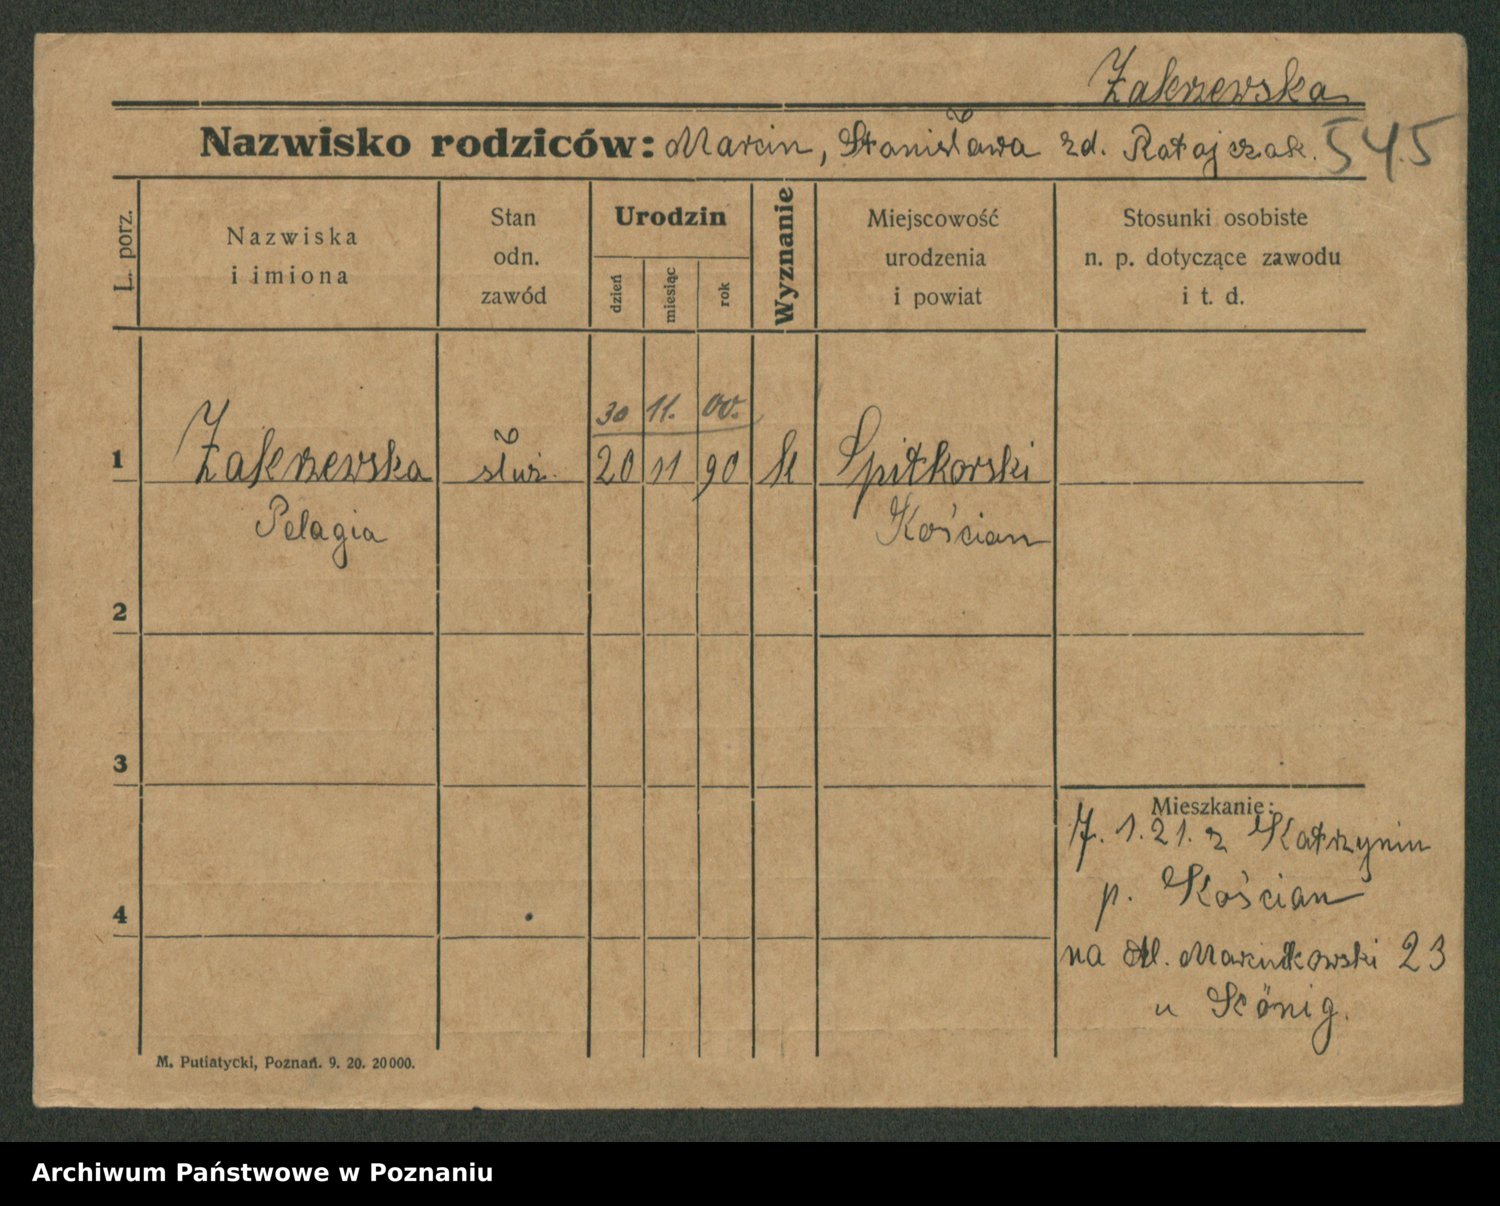 Zakrzewska
Nazwisko rodziców: Marcin, Stanisława zd. Ratajczak. 545
L. porz.
Nazwiska
i imiona
Stan
odn.
zawód
Urodzin
dzień
miesiąc
rok
Wyznanie
Miejscowość
urodzenia
i powiat
Stosunki osobiste
n. p. dotyczące zawodu
i t. d.
30 11. 00.
1 Zakrzewska służ. 20 11 90 k Spitkorski
Pelagia Kościan
2
3
4
Mieszkanie:
7. 1. 21. z Katrzynin
p. Kościan
na Al. Marcinkowski 23
u König.
M. Putiatycki, Poznań. 9. 20. 20000.
Archiwum Państwowe w Poznaniu